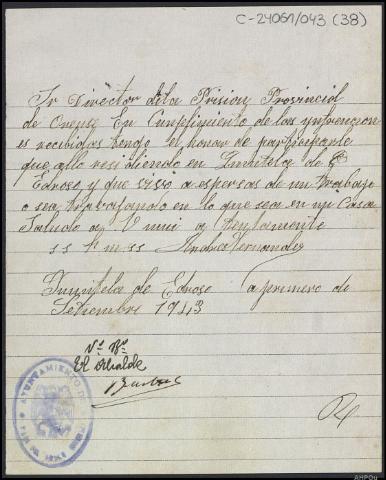 C-24061/043 (38)
Sr Director dela Prision Provincial
de Orense En Cunplimiento de las ynstrucion
es recibidas tengo el honor de participarle
que allo residiendo en Quintela de
Edroso y que vivo a espensas de mi trabajo
o sea trabajando en lo que sea en mi Casa
Saludo a V mui a tentamente
s s Andres Fernandez
Quintela de Edroso a primero de
Setiembre 1943
Vº Bº
El Alcalde
AYUNTAMIENTO DE
AHPOu